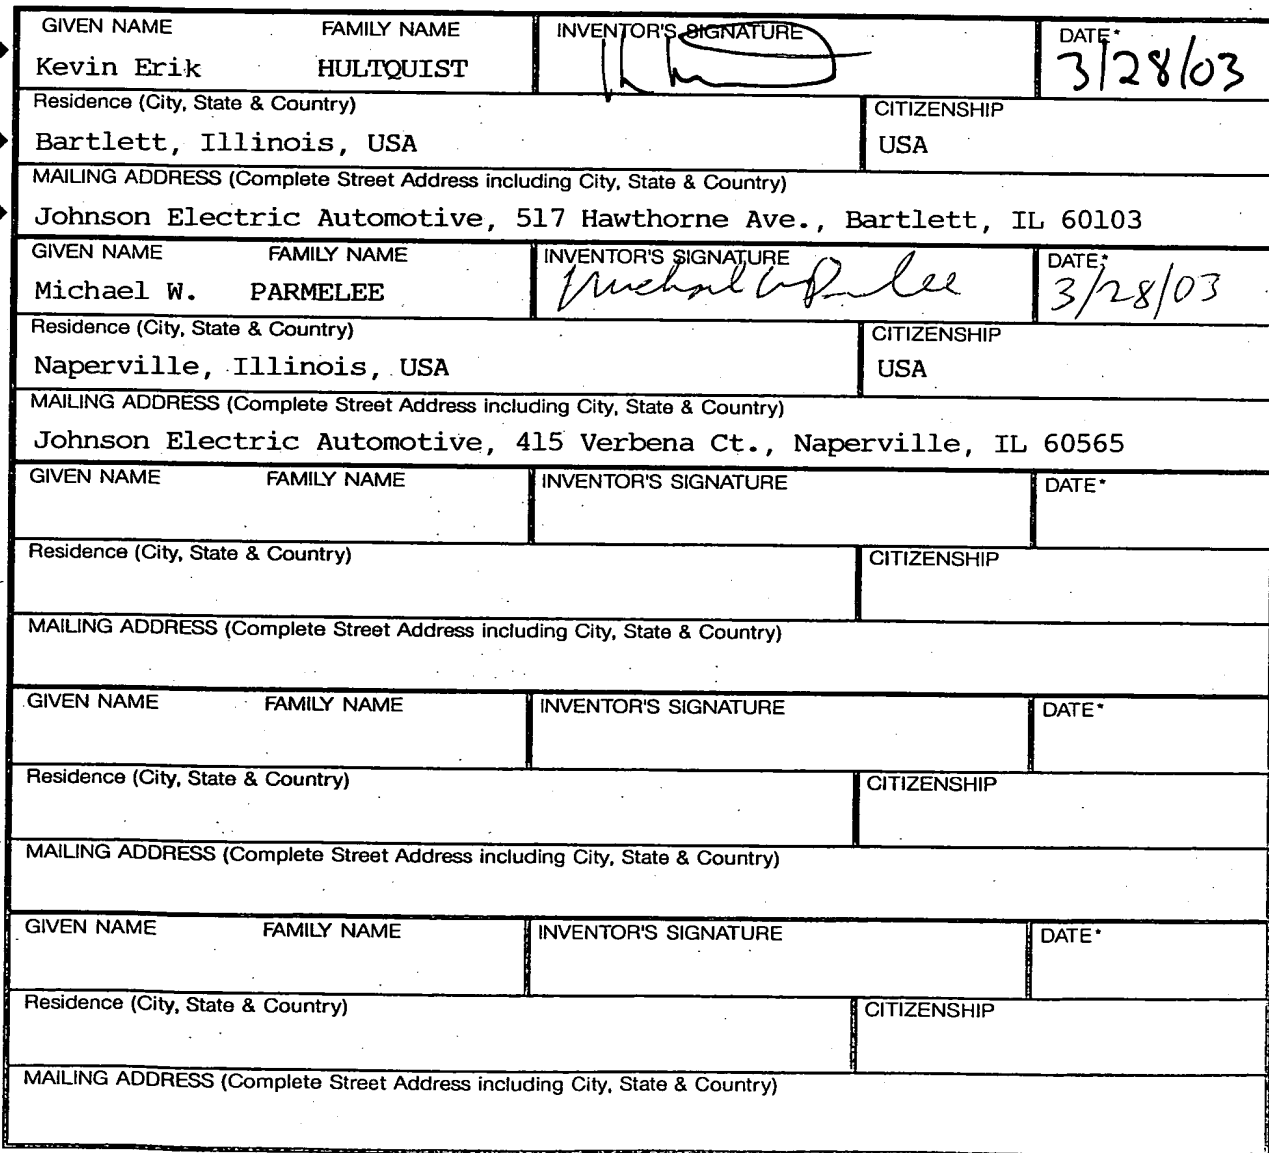 GIVEN NAME FAMILY NAME INVENTOR'S SIGNATURE DATE*
Kevin Erik HULTQUIST 3/28/03
Residence (City, State & Country) CITIZENSHIP
Bartlett, Illinois, USA USA
MAILING ADDRESS (Complete Street Address including City, State & Country)
Johnson Electric Automotive, 517 Hawthorne Ave., Bartlett, IL 60103
GIVEN NAME FAMILY NAME INVENTOR'S SIGNATURE DATE*
Michael W. PARMELEE Michael W Parmelee 3/28/03
Residence (City, State & Country) CITIZENSHIP
Naperville, Illinois, USA USA
MAILING ADDRESS (Complete Street Address including City, State & Country)
Johnson Electric Automotive, 415 Verbena Ct., Naperville, IL 60565
GIVEN NAME FAMILY NAME INVENTOR'S SIGNATURE DATE*
Residence (City, State & Country) CITIZENSHIP
MAILING ADDRESS (Complete Street Address including City, State & Country)
GIVEN NAME FAMILY NAME INVENTOR'S SIGNATURE DATE*
Residence (City, State & Country) CITIZENSHIP
MAILING ADDRESS (Complete Street Address including City, State & Country)
GIVEN NAME FAMILY NAME INVENTOR'S SIGNATURE DATE*
Residence (City, State & Country) CITIZENSHIP
MAILING ADDRESS (Complete Street Address including City, State & Country)